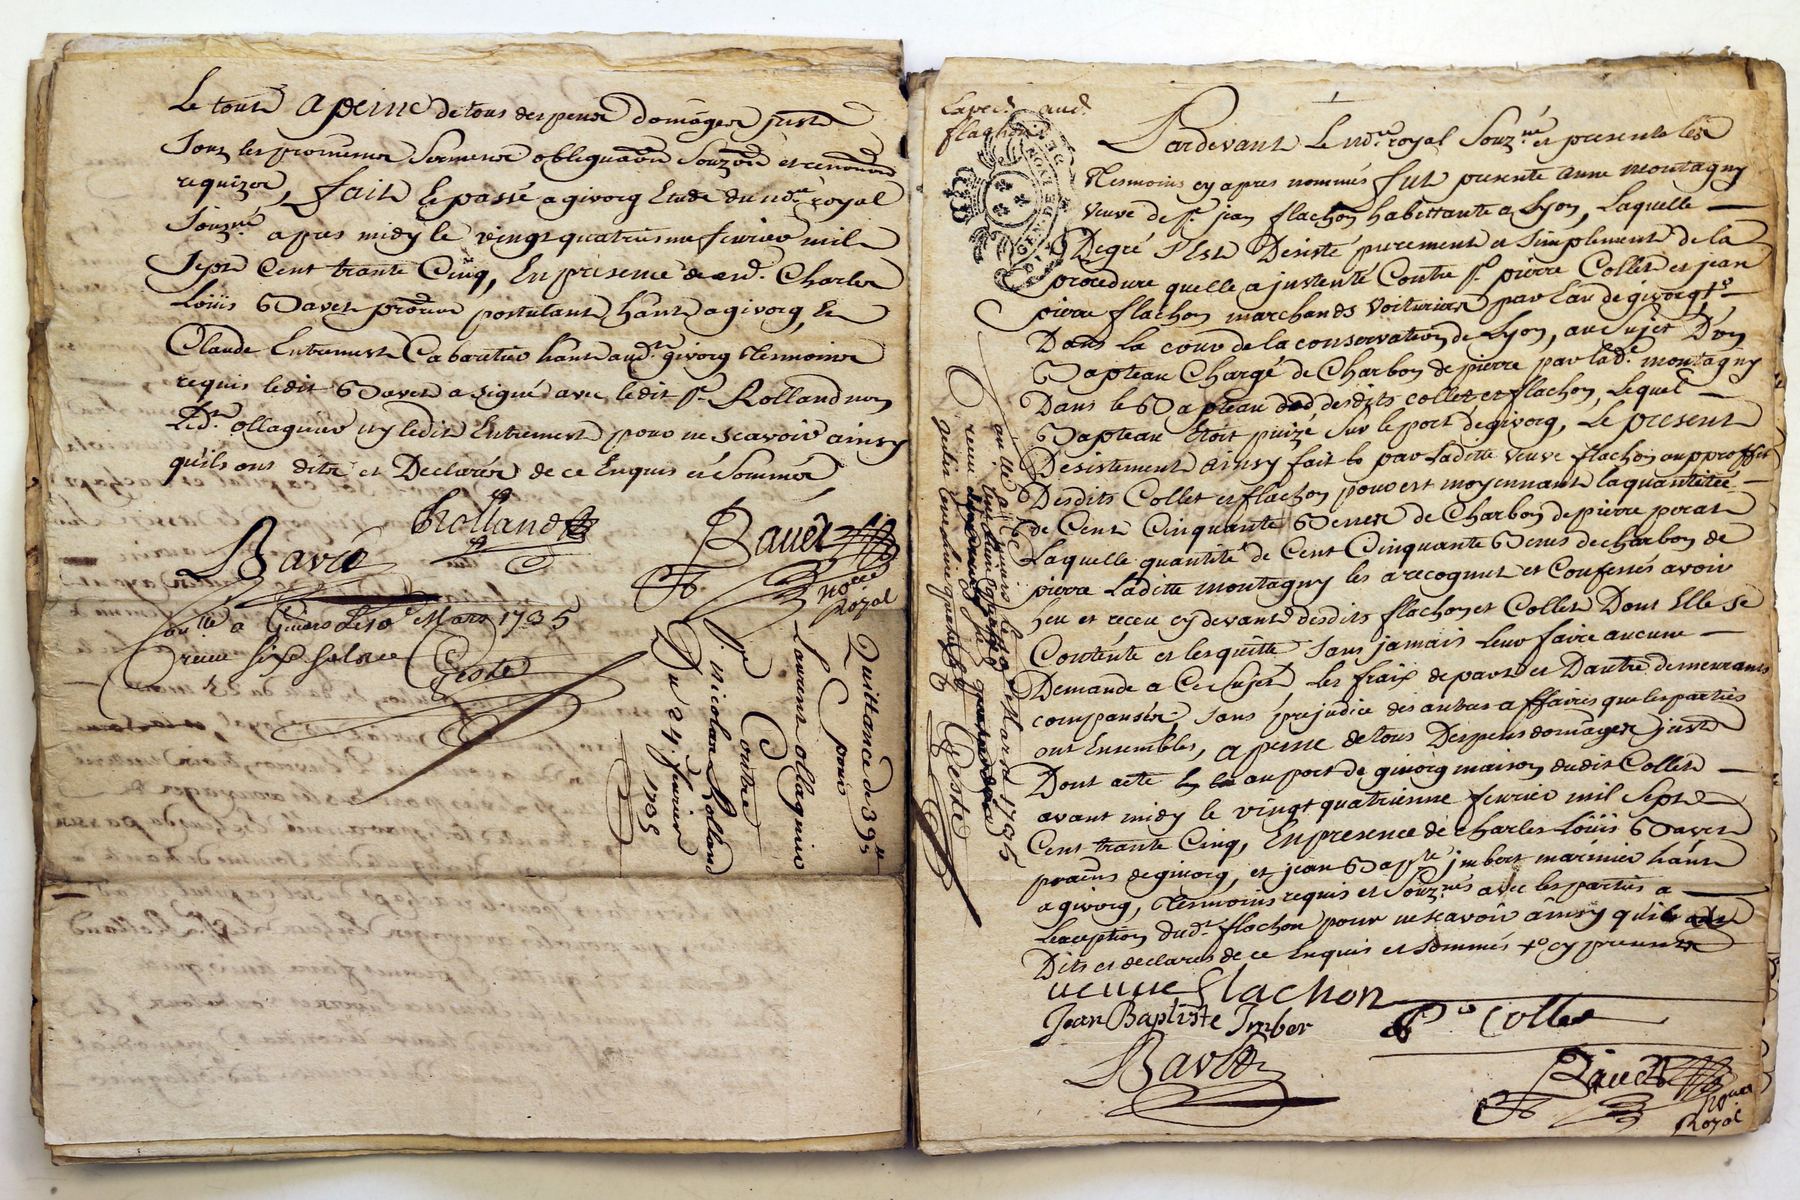 Le tout a peine de tous despens domages juste
Sous les promesses Sermens obligãon Souzõn et renonõn
requizes, fait & passé a givorg Etude du nõre royal
Souzné apres midy le vingt quatriesme fevrier mil
Sept Cent trante Cinq, En presence de me. Charles
Loüis Bavet prõur postulant hãnt a givorg, &
Claude Entremest Cabaretier hãnt aud. givorg tesmoins
requis ledit Bavet a signé avec ledit Sr. Rolland non
led. ollagnier ny ledit Entremest pour ne scavoir ainsy
qu'ils ont dits et Declarés de ce Enquis et Sommés
Rolland
Bavet
Bavet
Nore
Royal
Conlle a Givors Le 10e Mars 1735
receu six sols
Geste
Quittance de 39ll
pour
Laurent ollagnier
Contre
Sr. nicolas Rolland
Du 24. fevrier
1735
Exped. aud.
flachon
GEN. DE LYON
1
Pardevant Le nõre royal Souzné et presents les
tesmoins cy apres nommés fut presente anne montagny
veuve de Sr. jean flachon habittante a Lyon, Laquelle
De gré s'est Desisté purement et simplement de la
procedure quelle a justenté Contre Sr. pierre Collet et jean
pierre flachon marchands voituriers par Eau de givorg,
Dans la cour de la conservation de Lyon, au Sujet D'un
Bapteau Chargé de Charbon de pierre par lad. montagny
Dans le Bapteau desdits collet et flachon, Lequel
Bapteau Etoit puizé sur le port de givorg, Le present
Desistement ainsy fait par Laditte veuve flachon au proffit
Desdits Collet et flachon pour et moyennant la quantitéé
de Cent Cinquante Bennes de Charbon de pierre perat
Laquelle quantité de Cent Cinquante Bennes de charbon de
pierre Laditte montagny les a recognut et Confessés avoir
heu et receu cy devant desdits flachon et Collet Dont Elle se
Contente et les quitte sans jamais leur faire aucune
Demande a Ce Sujet, Les fraix de part et Dautre demeurants
compansés sans prejudice des autres affaires que les parties
ont Ensembles, a peine de tous Despens domages juste
Dont acte au port de givorg maison dudit Collet
avant midy le vingt quatrienne fevrier mil Sept
Cent trante Cinq, En presence de Charles Loüis Bavet
praĩns de givorg, et jean Bapte. jmbert marinier hãnt
a givorg, tesmoins requis et Souznés avec les parties a
Lexeption dud. flachon pour ne scavoir ainsy qu'il a
Dits et declarés de ce Enquis et Sommés cy presents
veuve flachon
Jean Baptiste Imber
Po Collet
Bavet
Bavet
Nore
Royal
Conlle a Givors le 10e Mars 1735
receu
Geste